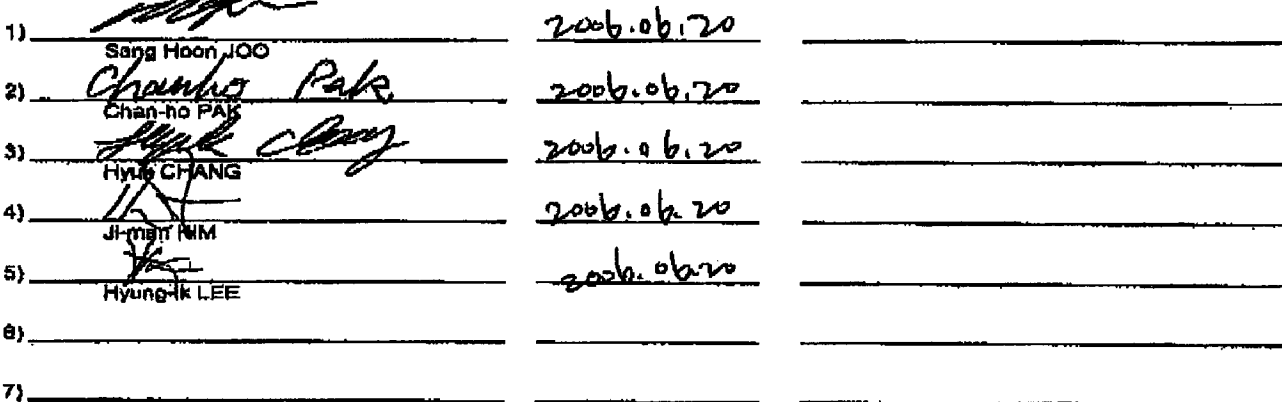 1) 2006.06.20
Sang Hoon JOO
2) Chanho Pak 2006.06.20
Chan-ho PAK
3) Hyuk Chang 2006.06.20
Hyuk CHANG
4) 2006.06.20
Ji-man KIM
5) 2006.06.20
Hyung-ik LEE
6)
7)